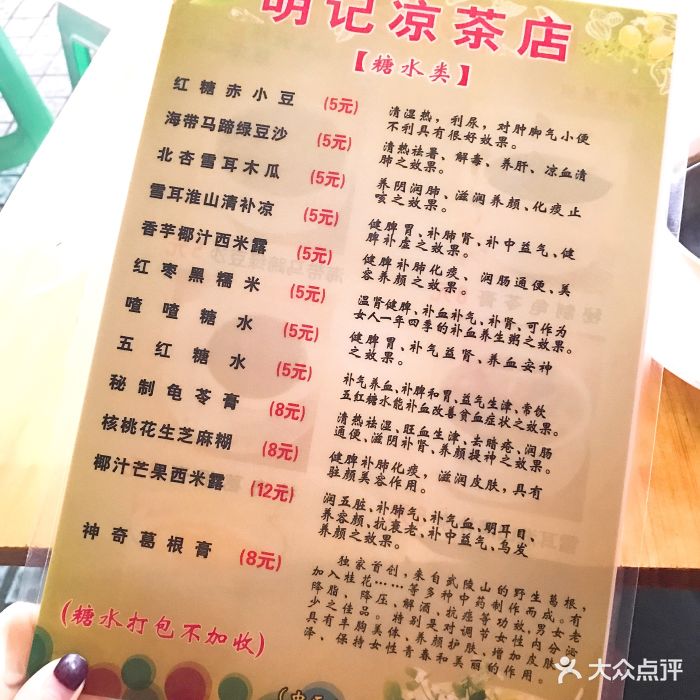 明记凉茶店
【糖水类】
红糖赤小豆 (5元)
清湿热，利尿，对肿脚气小便
不利具有很好效果。
海带马蹄绿豆沙 (5元)
清热祛暑、解毒、养肝、凉血清
肺之效果。
北杏雪耳木瓜 (5元)
养阴润肺、滋润养颜、化痰止
咳之效果。
雪耳淮山清补凉 (5元)
健脾胃、补肺肾、补中益气、健
脾补虚之效果。
香芋椰汁西米露 (5元)
健脾补肺化痰、润肠通便、美
容养颜之效果。
红枣黑糯米 (5元)
温肾健脾、补血补气、补肾、可作为
女人一年四季的补血养生粥之效果。
喳喳糖水 (5元)
健脾胃、补气益肾、养血安神
之效果。
五红糖水 (5元)
补气养血、补脾和胃、益气生津、常饮
五红糖水能补血改善贫血症状之效果。
秘制龟苓膏 (8元)
清热祛湿、旺血生津、去暗疮、润肠
通便、滋阴补肾、养颜提神之效果。
核桃花生芝麻糊 (8元)
健脾补肺化痰，滋润皮肤，具有
驻颜美容作用。
椰汁芒果西米露 (12元)
润五脏、补肺气、补气血、明耳目、
养容颜、抗衰老、补中益气、乌发
养颜之效果。
神奇葛根膏 (8元)
独家首创，来自武陵山的野生葛根，
加入桂花……等多种中药制作而成。有
降脂、降压、解酒、抗癌等功效，男女老
少之佳品。特别是对调节女性内分泌
具有丰胸美体、养颜护肤、增加皮肤光
泽、保持女性青春和美丽的作用。
(糖水打包不加收)
大众点评